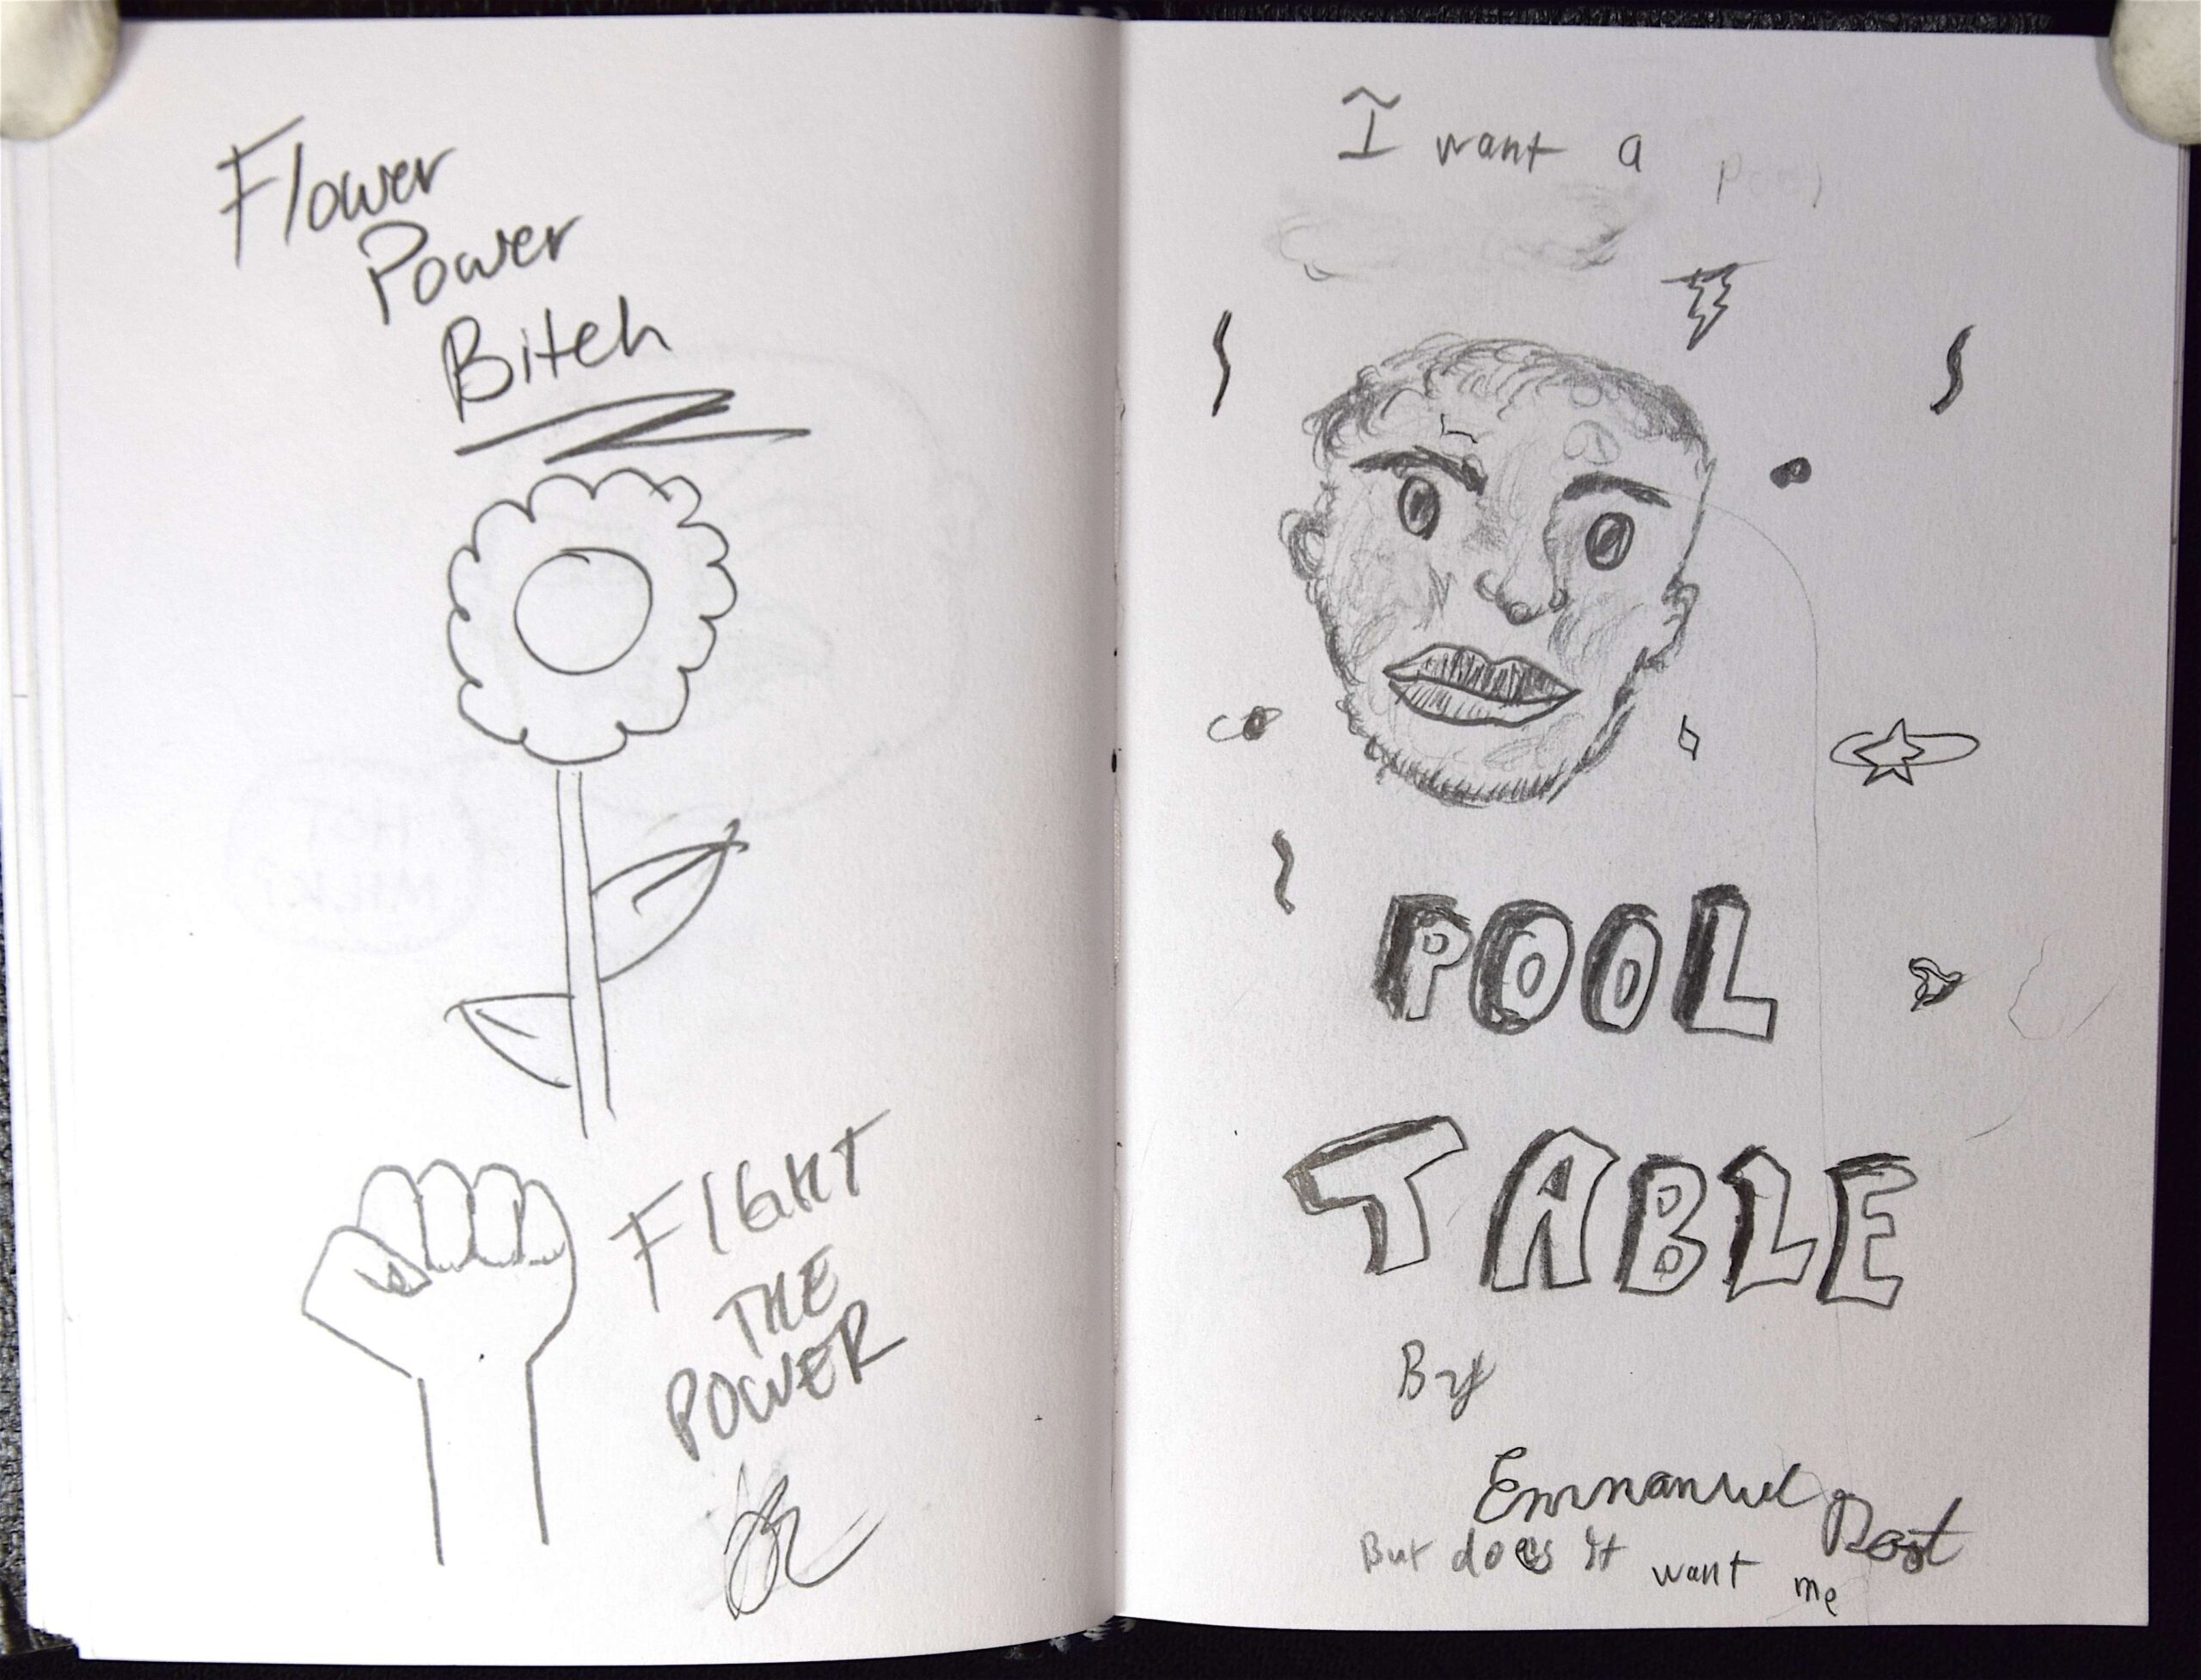 Flower
Power
Bitch
FIGHT
THE
POWER
I want a pool
POOL
TABLE
By
Emmanuel
But does it want me